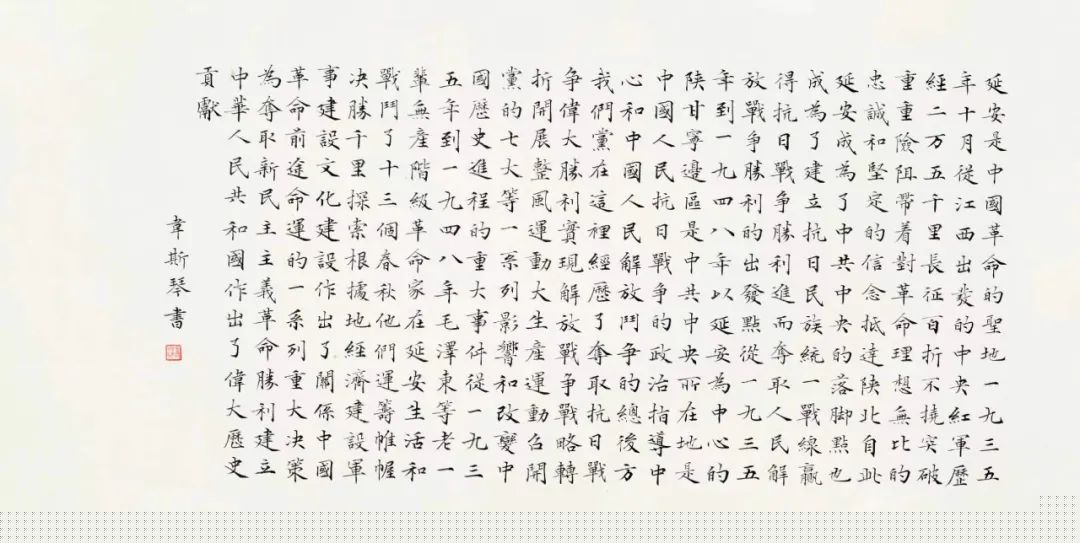 延安是中國革命的聖地一九三五
年十月從江西出發的中央紅軍歷
經二万五千里長征百折不撓突破
重重險阻帶着對革命理想無比的
忠誠和堅定的信念抵達陝北自此
延安成為了中共中央的落脚點也
成為了建立抗日民族統一戰線贏
得抗日戰争勝利進而奪取人民解
放戰争勝利的出發點從一九三五
年到一九四八年以延安為中心的
陝甘寧邊區是中共中央所在地是
中國人民抗日戰争的政治指導中
心和中國人民解放鬥争的總後方
我們黨在這裡經歷了奪取抗日戰
争偉大勝利實現解放戰争戰略轉
折開展整風運動大生産運動召開
黨的七大等一系列影響和改變中
國歷史進程的重大事件從一九三
五年到一九四八年毛澤東等老一
輩無産階級革命家在延安生活和
戰鬥了十三個春秋他們運籌帷幄
决勝千里探索根據地經濟建設軍
事建設文化建設作出了關係中國
革命前途命運的一系列重大决策
為奪取新民主主義革命勝利建立
中華人民共和國作出了偉大歷史
貢獻
韋斯琴書